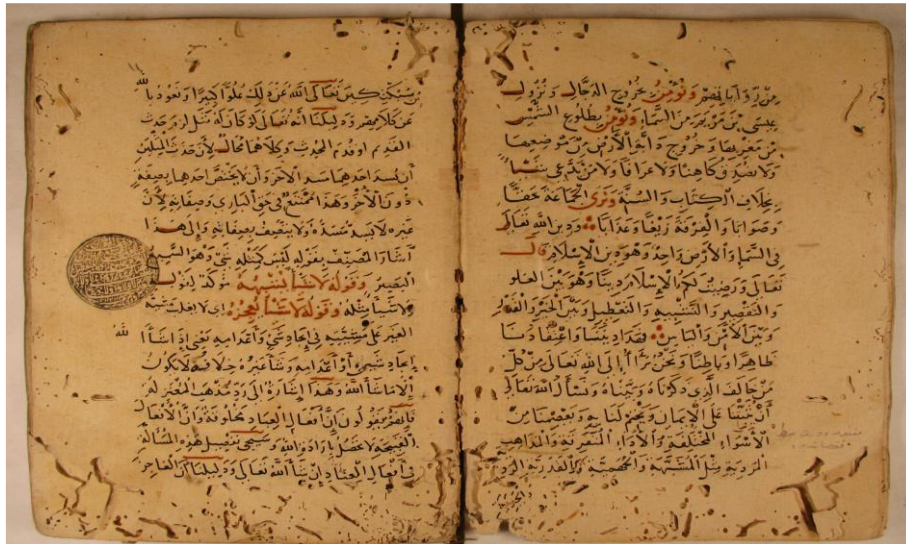 من رواياتهم ونؤمن بخروج الدجال ونزول
عيسى بن مريم من السماء ونؤمن بطلوع الشمس
من مغربها وخروج دابة الأرض من موضعها
ولا نصدق كاهنا ولا عرافا ولا من يدعي شيئا
بخلاف الكتاب والسنة ونرى الجماعة حقا
وصوابا والفرقة زيغا وعذابا ودين الله تعالى
في السماء والأرض واحد وهو دين الإسلام قال
تعالى ورضيت لكم الإسلام دينا وهو بين الغلو
والتقصير والتشبيه والتعطيل وبين الجبر والقدر
وبين الأمن والياس فهذا ديننا واعتقادنا
ظاهرا وباطنا ونحن برآء إلى الله تعالى من كل
من خالف الذي ذكرناه وبيناه ونسأل الله تعالى
أن يثبتنا على الإيمان ويختم لنا به ويعصمنا من
الأهواء المختلفة والآراء المتفرقة والمذاهب
الردية مثل المشبهة والجهمية والقدرية
تعالى الله عن ذلك علوا كبيرا ونعوذ بالله
عن كلامهم ودليلنا أنه تعالى لو كان له مثل لزم حدث
القديم أو قدم المحدث وكلاهما محال لأن حد المثلين
أن يسد أحدهما مسد الآخر وأن لا يختص أحدهما بصفة
دون الآخر وهذا ممتنع في حق الباري وصفاته لأن
غيره لا يسد مسده ولا يتصف بصفاته وإلى هذا
أشار المصنف بقوله ليس كمثله شيء وهو السميع
البصير وقوله لا شيء يشبهه توكيد لقوله
ولا شيء مثله وقوله لا شيء يعجزه أي لا يغلب
الغير على مشيئته في إيجاد شيء وإعدامه يعني إذا شاء الله
إيجاد شيء أو إعدامه وشاء غيره خلافه لا يكون
إلا ما شاء الله وهذا إشارة إلى رد مذهب المعتزلة
فإنهم يقولون إن أفعال العباد مخلوقة وأن الأفعال
القبيحة لا تحصل بإرادة الله وسيجيء تفصيل هذه المسألة
في أفعال العباد إن شاء الله تعالى ودليلنا أن العاجز